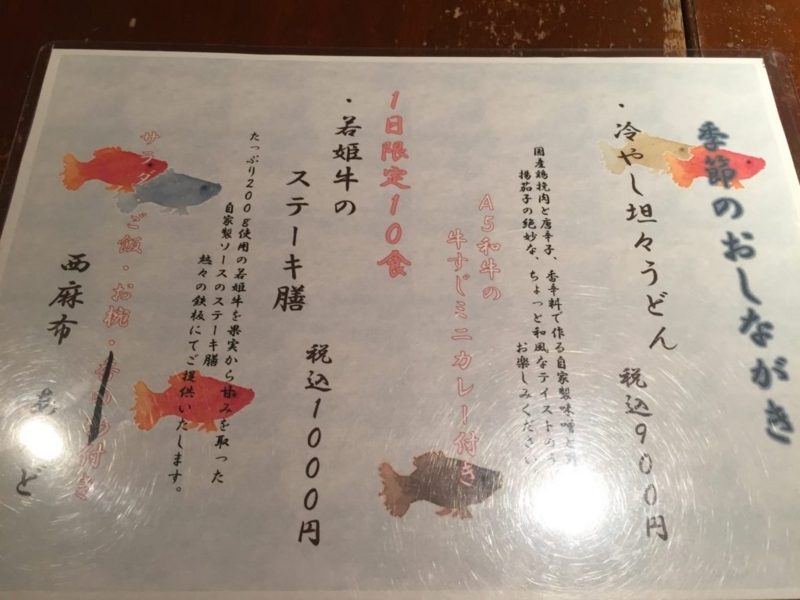 季節のおしながき
・冷やし坦々うどん
税込900円
国産鶏挽肉と唐辛子、香辛料で作る自家製味噌と
揚茄子の絶妙な、ちょっと和風なテイストの
お楽しみください
A5和牛の
牛すじミニカレー付き
1日限定10食
・若姫牛の
ステーキ膳
税込1000円
たっぷり200g使用の若姫牛を果実から甘みを取った
自家製ソースのステーキ膳
熱々の鉄板にてご提供いたします。
サラダ・ご飯・お椀・付き
西麻布